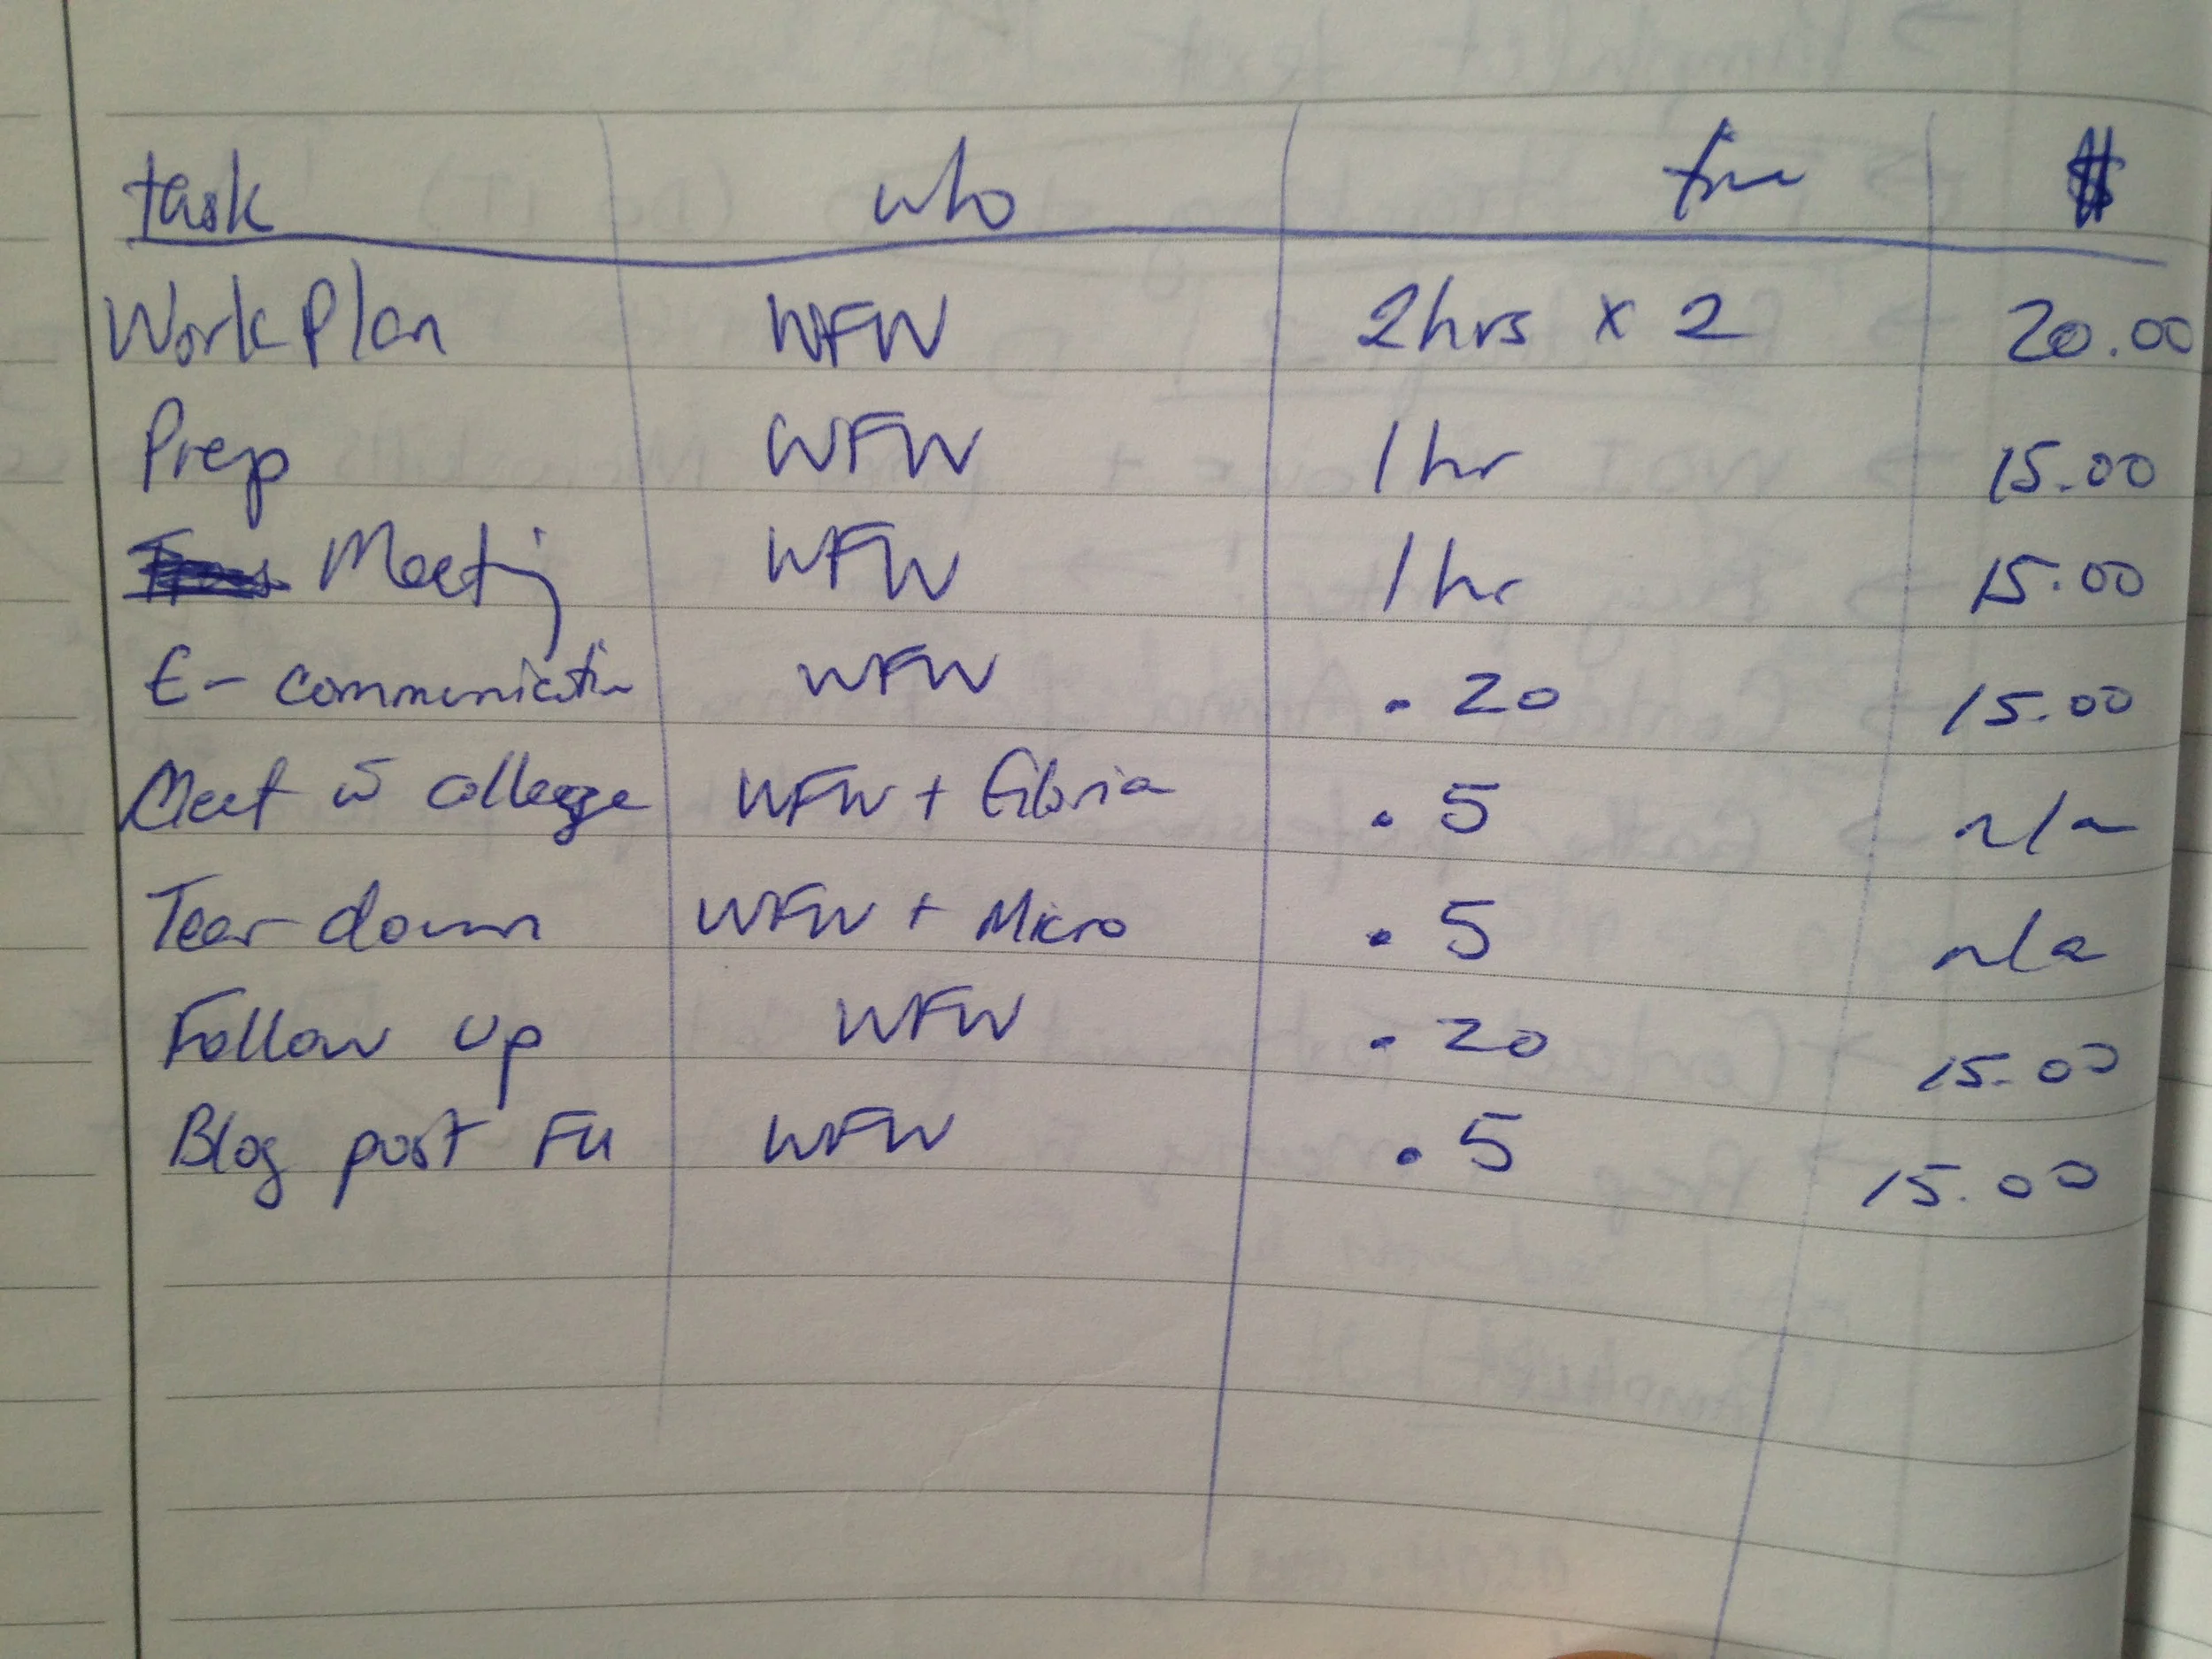 task who time $
Work Plan WFW 2hrs x 2 20.00
Prep WFW 1 hr 15.00
Meeting WFW 1 hr 15.00
E-communication WFW . 20 15.00
Meet w̄ college WFW + Gloria . 5 n/a
Tear down WFW + Micro . 5 n/a
Follow up WFW . 20 15.00
Blog post FU WFW . 5 15.00